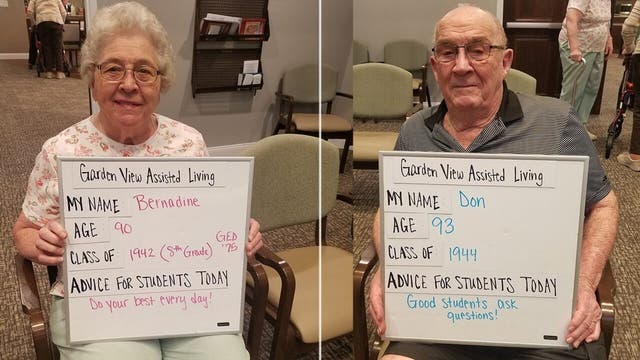 Garden View Assisted Living
MY NAME Bernadine
AGE 90
CLASS OF 1942 (8th Grade) GED '75
ADVICE FOR STUDENTS TODAY
Do your best every day!
Garden View Assisted Living
MY NAME Don
AGE 93
CLASS OF 1944
ADVICE FOR STUDENTS TODAY
Good students ask
questions!